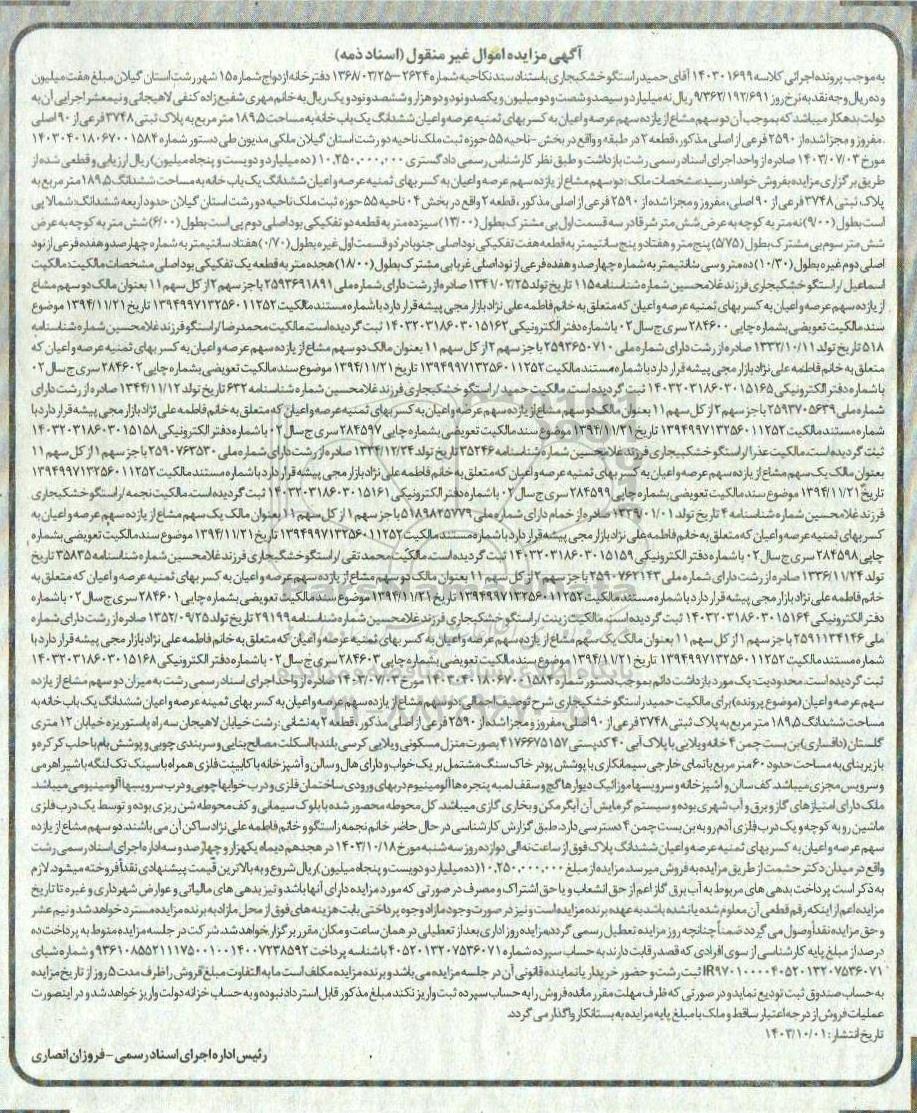 آگهی مزایده اموال غیر منقول (اسناد ذمه)
به موجب پرونده اجرائی کلاسه ۱۴۰۳۰۱۶۹۹ آقای حمید راستگو خشکبجاری باستناد سند نکاحیه شماره ۲۶۲۴-۱۳۶۸/۰۳/۲۵ دفترخانه ازدواج شماره ۱۵ شهر رشت استان گیلان مبلغ هفت میلیون
و ده ریال وجه نقد به نرخ روز ۹/۳۶۲/۱۹۲/۶۹۱ ریال نه میلیارد و سیصد و شصت و دو میلیون و یکصد و نود و دو هزار و ششصد و نود و یک ریال به خانم مهری شفیع زاده کنفی لاهیجانی و نیم عشر اجرایی آن به
دولت بدهکار میباشد که بموجب آن دو سهم مشاع از یازده سهم عرصه و اعیان به کسر بهای ثمنیه عرصه و اعیان ششدانگ یک باب خانه به مساحت ۱۸۹،۵ متر مربع به پلاک ثبتی ۳۷۴۸ فرعی از ۹۰ اصلی
، مفروز و مجزا شده از ۲۵۹۰ فرعی از اصلی مذکور، قطعه ۲ در طبقه و واقع در بخش - ناحیه ۵۵ حوزه ثبت ملک ناحیه دو رشت استان گیلان ملکی مدیون طی دستور شماره ۱۴۰۳۰۴۰۱۸۰۶۷۰۰۱۵۸۴
مورخ ۱۴۰۳/۰۷/۰۳ صادره از واحد اجرای اسناد رسمی رشت بازداشت و طبق نظر کارشناس رسمی دادگستری ۱۰،۲۵۰،۰۰۰،۰۰۰ (ده میلیارد و دویست و پنجاه میلیون) ریال ارزیابی و قطعی شده از
طریق برگزاری مزایده بفروش خواهد رسید: مشخصات ملک: دو سهم مشاع از یازده سهم عرصه و اعیان به کسر بهای ثمنیه عرصه و اعیان ششدانگ یک باب خانه به مساحت ششدانگ ۱۸۹،۵ متر مربع به
پلاک ثبتی ۳۷۴۸ فرعی از ۹۰ اصلی، مفروز و مجزا شده از ۲۵۹۰ فرعی از اصلی مذکور، قطعه ۲ واقع در بخش ۰۴ ناحیه ۵۵ حوزه ثبت ملک ناحیه دو رشت استان گیلان حدود اربعه ششدانگ: شمالا پی
است بطول (۹/۰۰) نه متر به کوچه به عرض شش متر شرقا در سه قسمت اول پی مشترک بطول (۱۳/۰۰) سیزده متر به قطعه دو تفکیکی بود اصلی دوم پی است بطول (۶/۰۰) شش متر به کوچه به عرض
شش متر سوم پی مشترک بطول (۵/۷۵) پنج متر و هفتاد و پنج سانتیمتر به قطعه هفت تفکیکی نود اصلی جنوبا در دو قسمت اول غیره بطول (۰/۷۰) هفتاد سانتیمتر به شماره چهارصد و هفده فرعی از نود
اصلی دوم غیره بطول (۱۰/۳۰) ده متر و سی سانتیمتر به شماره چهارصد و هفده فرعی از نود اصلی غربا پی مشترک بطول (۱۸/۰۰) هجده متر به قطعه یک تفکیکی بود اصلی مشخصات مالکیت: مالکیت
اسماعیل / راستگو خشکبجاری فرزند غلامحسین شماره شناسنامه ۱۱۵ تاریخ تولد ۱۳۴۱/۰۲/۲۵ صادره از رشت دارای شماره ملی ۲۵۹۳۶۹۱۸۹۱ با جز سهم ۲ از کل سهم ۱۱ بعنوان مالک دو سهم مشاع
از یازده سهم عرصه و اعیان به کسر بهای ثمنیه عرصه و اعیان که متعلق به خانم فاطمه علی نژاد بازار مجی پیشه قرار دارد با شماره مستند مالکیت ۱۳۹۴۹۹۷۱۳۲۵۶۰۱۱۲۵۲ تاریخ ۱۳۹۴/۱۱/۲۱ موضوع
سند مالکیت تعویضی بشماره چاپی ۲۸۴۶۰۰ سری ج سال ۰۲ با شماره دفتر الکترونیکی ۱۴۰۳۲۰۳۱۸۶۰۳۰۱۵۱۶۲ ثبت گردیده است. مالکیت محمدرضا / راستگو فرزند غلامحسین شماره شناسنامه
۵۱۸ تاریخ تولد ۱۳۳۲/۱۰/۱۱ صادره از رشت دارای شماره ملی ۲۵۹۳۶۵۰۷۱۰ با جز سهم ۲ از کل سهم ۱۱ بعنوان مالک دو سهم مشاع از یازده سهم عرصه و اعیان به کسر بهای ثمنیه عرصه و اعیان که
متعلق به خانم فاطمه علی نژاد بازار مجی پیشه قرار دارد با شماره مستند مالکیت ۱۳۹۴۹۹۷۱۳۲۵۶۰۱۱۲۵۲ تاریخ ۱۳۹۴/۱۱/۲۱ موضوع سند مالکیت تعویضی بشماره چاپی ۲۸۴۶۰۲ سری ج سال ۰۲
با شماره دفتر الکترونیکی ۱۴۰۳۲۰۳۱۸۶۰۳۰۱۵۱۶۵ ثبت گردیده است. مالکیت حمید / راستگو خشکبجاری فرزند غلامحسین شماره شناسنامه ۶۳۲ تاریخ تولد ۱۳۴۴/۱۱/۱۲ صادره از رشت دارای
شماره ملی ۲۵۹۳۷۰۵۶۳۹ با جز سهم ۲ از کل سهم ۱۱ بعنوان مالک دو سهم مشاع از یازده سهم عرصه و اعیان به کسر بهای ثمنیه عرصه و اعیان که متعلق به خانم فاطمه علی نژاد بازار مجی پیشه قرار دارد با
شماره مستند مالکیت ۱۳۹۴۹۹۷۱۳۲۵۶۰۱۱۲۵۲ تاریخ ۱۳۹۴/۱۱/۲۱ موضوع سند مالکیت تعویضی بشماره چاپی ۲۸۴۵۹۷ سری ج سال ۰۲ با شماره دفتر الکترونیکی ۱۴۰۳۲۰۳۱۸۶۰۳۰۱۵۱۵۸
ثبت گردیده است. مالکیت عذرا / راستگو خشکبیجاری فرزند غلامحسین شماره شناسنامه ۳۵۲۴۶ تاریخ تولد ۱۳۳۴/۱۲/۲۴ صادره از رشت دارای شماره ملی ۲۵۹۰۷۶۳۵۳۰ با جز سهم ۱ از کل سهم ۱۱
بعنوان مالک یک سهم مشاع از یازده سهم عرصه و اعیان به کسر بهای ثمنیه عرصه و اعیان که متعلق به خانم فاطمه علی نژاد بازار مجی پیشه قرار دارد با شماره مستند مالکیت ۱۳۹۴۹۹۷۱۳۲۵۶۰۱۱۲۵۲
تاریخ ۱۳۹۴/۱۱/۲۱ موضوع سند مالکیت تعویضی بشماره چاپی ۲۸۴۵۹۹ سری ج سال ۰۲ با شماره دفتر الکترونیکی ۱۴۰۳۲۰۳۱۸۶۰۳۰۱۵۱۶۱ ثبت گردیده است. مالکیت نجمه / راستگو خشکبیجاری
فرزند غلامحسین شماره شناسنامه ۴ تاریخ تولد ۱۳۳۹/۰۱/۰۱ صادره از خمام دارای شماره ملی ۵۱۸۹۸۲۵۷۷۹ با جز سهم ۱ از کل سهم ۱۱ بعنوان مالک یک سهم مشاع از یازده سهم عرصه و اعیان به
کسر بهای ثمنیه عرصه و اعیان که متعلق به خانم فاطمه علی نژاد بازار مجی پیشه قرار دارد با شماره مستند مالکیت ۱۳۹۴۹۹۷۱۳۲۵۶۰۱۱۲۵۲ تاریخ ۱۳۹۴/۱۱/۲۱ موضوع سند مالکیت تعویضی بشماره
چاپی ۲۸۴۵۹۸ سری ج سال ۰۲ با شماره دفتر الکترونیکی ۱۴۰۳۲۰۳۱۸۶۰۳۰۱۵۱۵۹ ثبت گردیده است. مالکیت محمد تقی / راستگو خشکبیجاری فرزند غلامحسین شماره شناسنامه ۳۵۸۳۵ تاریخ
تولد ۱۳۳۶/۱۱/۲۴ صادره از رشت دارای شماره ملی ۲۵۹۰۷۶۲۱۴۳ با جز سهم ۲ از کل سهم ۱۱ بعنوان مالک دو سهم مشاع از یازده سهم عرصه و اعیان به کسر بهای ثمنیه عرصه و اعیان که متعلق به
خانم فاطمه علی نژاد بازار مجی پیشه قرار دارد با شماره مستند مالکیت ۱۳۹۴۹۹۷۱۳۲۵۶۰۱۱۲۵۲ تاریخ ۱۳۹۴/۱۱/۲۱ موضوع سند مالکیت تعویضی بشماره چاپی ۲۸۴۶۰۱ سری ج سال ۰۲ با شماره
دفتر الکترونیکی ۱۴۰۳۲۰۳۱۸۶۰۳۰۱۵۱۶۴ ثبت گردیده است. مالکیت زینت / راستگو خشکبجاری فرزند غلامحسین شماره شناسنامه ۲۹۱۹۹ تاریخ تولد ۱۳۵۲/۰۹/۲۵ صادره از رشت دارای شماره
ملی ۲۵۹۱۱۳۴۱۴۶ با جز سهم ۱ از کل سهم ۱۱ بعنوان مالک یک سهم مشاع از یازده سهم عرصه و اعیان به کسر بهای ثمنیه عرصه و اعیان که متعلق به خانم فاطمه علی نژاد بازار مجی پیشه قرار دارد با
شماره مستند مالکیت ۱۳۹۴۹۹۷۱۳۲۵۶۰۱۱۲۵۲ تاریخ ۱۳۹۴/۱۱/۲۱ موضوع سند مالکیت تعویضی بشماره چاپی ۲۸۴۶۰۳ سری ج سال ۰۲ با شماره دفتر الکترونیکی ۱۴۰۳۲۰۳۱۸۶۰۳۰۱۵۱۶۸
ثبت گردیده است. محدودیت: یک مورد بازداشت دائم بموجب دستور شماره ۱۴۰۳۰۴۰۱۸۰۶۷۰۰۱۵۸۴ مورخ ۱۴۰۳/۰۷/۰۳ صادره از واحد اجرای اسناد رسمی رشت به میزان دو سهم مشاع از یازده
سهم عرصه و اعیان (موضوع پرونده) برای مالکیت حمید راستگو خشکبیجاری شرح توصیف اجمالی: دو سهم مشاع از یازده سهم عرصه و اعیان به کسر بهای ثمینه عرصه و اعیان ششدانگ یک باب خانه به
مساحت ششدانگ ۱۸۹،۵ متر مربع به پلاک ثبتی ۳۷۴۸ فرعی از ۹۰ اصلی، مفروز و مجزا شده از ۲۵۹۰ فرعی از اصلی مذکور، قطعه ۲ به نشانی: رشت خیابان لاهیجان سه راه پاستوریزه خیابان ۱۲ متری
گلستان (دافساری) بن بست چمن ۴ خانه ویلایی با پلاک آبی ۴۰ کدپستی ۴۱۷۶۶۷۵۱۵۷ بصورت منزل مسکونی ویلایی کرسی بلند با اسکلت مصالح بنایی و سربندی چوبی و پوشش بام با حلب کرکره و
با زیربنای به مساحت حدود ۶۰ متر مربع با نمای خارجی سیمانکاری با پوشش پودر خاک سنگ مشتمل بر یک خواب و دارای هال و سالن و آشپزخانه با کابینت فلزی همراه با سینک تک لنگه با شیر اهرمی
و سرویس مجزی میباشد. کف سالن و آشپزخانه و سرویسها موزائیک دیوارها گچ و سقف لمبه پنجره ها آلومینیوم درهای ورودی ساختمان فلزی و درب خوابها چوبی و درب سرویسها آلومینیومی میباشد.
ملک دارای امتیازهای گاز و برق و آب شهری بوده و سیستم گرمایش آن آبگرمکن و بخاری گازی میباشد. کل محوطه محصور شده با بلوک سیمانی و کف محوطه شن ریزی بوده و توسط یک درب فلزی
ماشین رو به کوچه و یک درب فلزی آدم رو به بن بست چمن ۴ دسترسی دارد. طبق گزارش کارشناسی در حال حاضر خانم نجمه راستگو و خانم فاطمه علی نژاد ساکن آن می باشند. دو سهم مشاع از یازده
سهم عرصه و اعیان به کسر بهای ثمنیه عرصه و اعیان ششدانگ پلاک فوق از ساعت نه الی دوازده روز سه شنبه مورخ ۱۴۰۳/۱۰/۱۸ در هجدهم دیماه یکهزار و چهارصد و سه اداره اجرای اسناد رسمی رشت
واقع در میدان دکتر حشمت از طریق مزایده به فروش میرسد. مزایده از مبلغ ۱۰،۲۵۰،۰۰۰،۰۰۰ (ده میلیارد و دویست و پنجاه میلیون) ریال شروع و به بالاترین قیمت پیشنهادی نقداً فروخته میشود. لازم
به ذکر است پرداخت بدهی های مربوط به آب برق گاز اعم از حق انشعاب و یا حق اشتراک و مصرف در صورتی که مورد مزایده دارای آنها باشد و نیز بدهی های مالیاتی و عوارض شهرداری و غیره تا تاریخ
مزایده اعم از اینکه رقم قطعی آن معلوم شده یا نشده باشد به عهده برنده مزایده است و نیز در صورت وجود مازاد وجوه پرداختی بابت هزینه های فوق از محل مازاد به برنده مزایده مسترد خواهد شد و نیم عشر
و حق مزایده نقداً وصول می گردد ضمناً چنانچه روز مزایده تعطیل رسمی گردد، مزایده روز اداری بعد از تعطیلی در همان ساعت و مکان مقرر برگزار خواهد شد. شرکت در جلسه مزایده منوط به پرداخت ده
درصد از مبلغ پایه کارشناسی از سوی افرادی که قصد رقابت دارند به حساب سپرده شماره ۴۰۵۲۰۱۳۲۰۷۵۳۶۰۷۱ با شناسه پرداخت ۹۳۶۱۰۸۵۵۲۱۱۱۷۵۰۰۱۰۰۱۴۰۰۷۲۳۸۵۹۲ و شماره شبای
IR۹۷۰۱۰۰۰۰۴۰۵۲۰۱۳۲۰۷۵۳۶۰۷۱ ثبت رشت و حضور خریدار یا نماینده قانونی آن در جلسه مزایده می باشد و برنده مزایده مکلف است ما به التفاوت مبلغ فروش را ظرف مدت ۵ روز از تاریخ مزایده
به حساب صندوق ثبت تودیع نماید و در صورتی که ظرف مهلت مقرر مانده فروش را به حساب سپرده ثبت واریز نکند مبلغ مذکور قابل استرداد نبوده و به حساب خزانه دولت واریز خواهد شد و در اینصورت
عملیات فروش از درجه اعتبار ساقط و ملک با مبلغ پایه مزایده به بستانکار واگذار می گردد.
تاریخ انتشار: ۱۴۰۳/۱۰/۰۱
رئیس اداره اجرای اسناد رسمی - فروزان انصاری